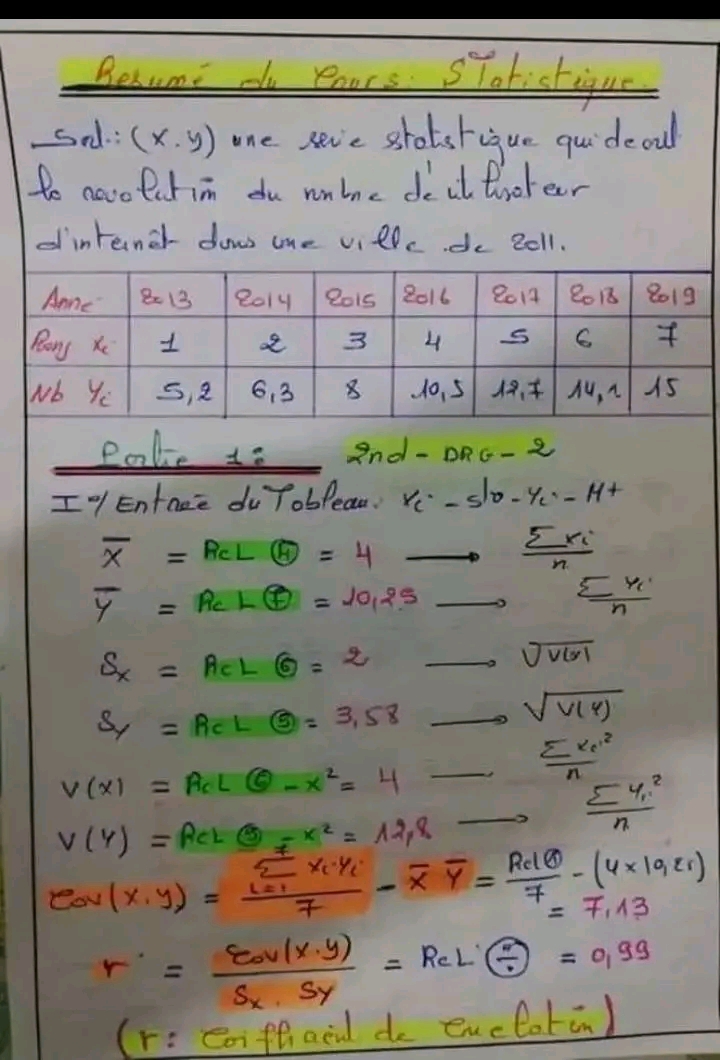 Resumé du Cours: STatistique.
Soit: (x.y) une serie statistique qui decrit
la du nombre d'utilisateur
d'internet dans une ville de 2011.
Anne 2013 2014 2015 2016 2017 2018 2019
Rang xi 1 2 3 4 5 6 7
Nb Yi 5,2 6,3 8 10,5 12,7 14,1 15
Partie 1: 2nd - DRG - 2
I°/ Entrée du Tableau: xi - sto - Yi - M+
X̄ = RcL ④ = 4 → Σxi/n
Ȳ = RcL ⑦ = 10,25 → ΣYi/n
Sx = RcL ⑥ = 2 → √V(x)
Sy = RcL = 3,58 → √V(Y)
V(x) = RcL ⑥ - x² = 4 — Σxi²/n
V(Y) = RcL - x² = 12,8 → ΣYi²/n
Cov(x.y) = Σ(i=1→7) xi.Yi / 7 - X̄ Ȳ = RcL / 7 - (4 x 10,25)
= 7,13
r = Cov(x.y) / Sx . Sy = RcL (÷) = 0,99
(r: de )